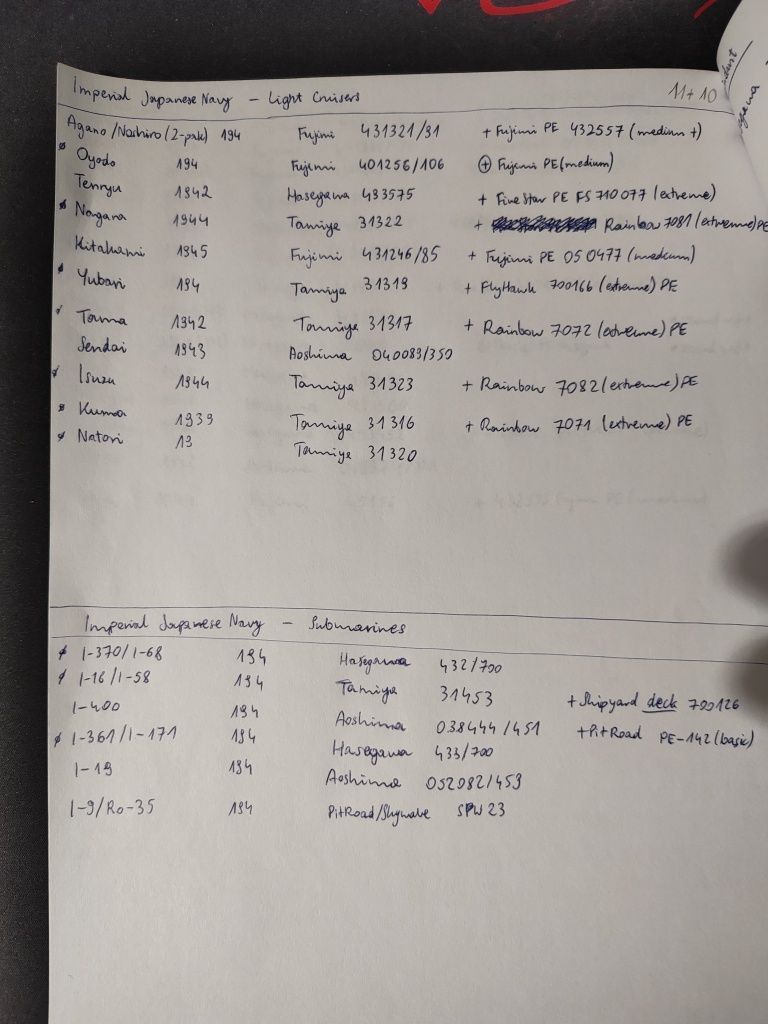 Imperial Japanese Navy – Light Cruisers 11+10
Agano/Noshiro (2-pak) 194 Fujimi 431321/91 + Fujimi PE 432557 (medium +)
Oyodo 194 Fujimi 401256/106 ⊕ Fujimi PE (medium)
Tenryu 1942 Hasegawa 493575 + FiveStar PE FS 710077 (extreme)
Nagara 1944 Tamiya 31322 + Rainbow 7081 (extreme) PE
Kitakami 1945 Fujimi 431246/85 + Fujimi PE 050477 (medium)
Yubari 194 Tamiya 31319 + FlyHawk 700166 (extreme) PE
Tama 1942 Tamiya 31317 + Rainbow 7072 (extreme) PE
Sendai 1943 Aoshima 040089/350
Isuzu 1944 Tamiya 31323 + Rainbow 7082 (extreme) PE
Kuma 1939 Tamiya 31316 + Rainbow 7071 (extreme) PE
Natori 19 Tamiya 31320
Imperial Japanese Navy – Submarines
I-370/I-68 194 Hasegawa 432/700
I-16/I-58 194 Tamiya 31453 + Shipyard deck 700126
I-400 194 Aoshima 038444/451 + PitRoad PE-142 (basic)
I-361/I-171 194 Hasegawa 433/700
I-19 194 Aoshima 052082/459
I-9/Ro-35 194 PitRoad/Skywave SPW 23